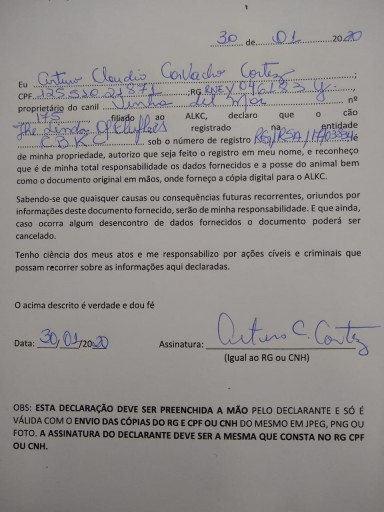 30 de 01 2020
Eu Arturo Claudio Carvacho Cortez
CPF ;RG RNE Y046183 Y
proprietário do canil Vinha del Mar nº
175 filiado ao ALKC, declaro que o cão
The registrado na entidade
CBKC sob o número de registro de
de minha propriedade, autorizo que seja feito o registro em meu nome, e reconheço
que é de minha total responsabilidade os dados fornecidos e a posse do animal bem
como o documento original em mãos, onde forneço a cópia digital para o ALKC.
Sabendo-se que quaisquer causas ou consequências futuras recorrentes, oriundos por
informações deste documento fornecido, serão de minha responsabilidade. E que ainda,
caso ocorra algum desencontro de dados fornecidos o documento poderá ser
cancelado.
Tenho ciência dos meus atos e me responsabilizo por ações cíveis e criminais que
possam recorrer sobre as informações aqui declaradas.
O acima descrito é verdade e dou fé
Data: 30/01/2020 Assinatura: Arturo C. Cortez
(Igual ao RG ou CNH)
OBS: ESTA DECLARAÇÃO DEVE SER PREENCHIDA A MÃO PELO DECLARANTE E SÓ É
VÁLIDA COM O ENVIO DAS CÓPIAS DO RG E CPF OU CNH DO MESMO EM JPEG, PNG OU
FOTO. A ASSINATURA DO DECLARANTE DEVE SER A MESMA QUE CONSTA NO RG CPF
OU CNH.